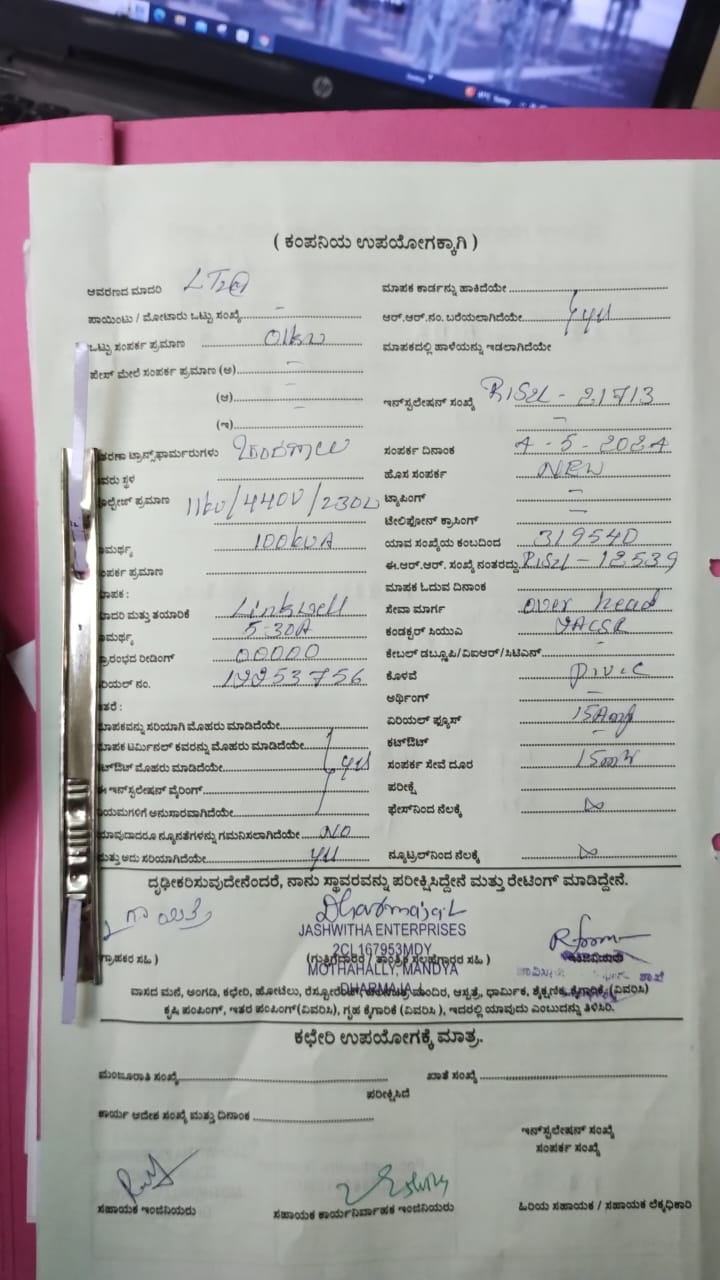 ( ಕಂಪನಿಯ ಉಪಯೋಗಕ್ಕಾಗಿ )
ಆವರಣದ ಮಾದರಿ LT2@ ಮಾಪಕ ಕಾರ್ಡನ್ನು ಹಾಕಿದೆಯೇ
ಪಾಯಿಂಟು / ಮೋಟಾರು ಒಟ್ಟು ಸಂಖ್ಯೆ - ಆರ್.ಆರ್.ನಂ. ಬರೆಯಲಾಗಿದೆಯೇ yes
ಒಟ್ಟು ಸಂಪರ್ಕ ಪ್ರಮಾಣ 01kw ಮಾಪಕದಲ್ಲಿ ಹಾಳೆಯನ್ನು ಇಡಲಾಗಿದೆಯೇ
ಫೇಸ್ ಮೇಲೆ ಸಂಪರ್ಕ ಪ್ರಮಾಣ (ಅ) -
(ಆ) - ಇನ್‌ಸ್ಟಲೇಷನ್ ಸಂಖ್ಯೆ - 21713
(ಇ) - -
ತರಣಾ ಟ್ರಾನ್ಸ್‌ಫಾರ್ಮರುಗಳು ಸಂಪರ್ಕ ದಿನಾಂಕ 4-5-2024
ವರು ಸ್ಥಳ ಹೊಸ ಸಂಪರ್ಕ NEW
ಪ್ರಮಾಣ 11kv/440V/230V ಟ್ಯಾಪಿಂಗ್ -
ಟೆಲಿಫೋನ್ ಕ್ರಾಸಿಂಗ್ -
ಾಮರ್ಥ್ಯ 100kVA ಯಾವ ಸಂಖ್ಯೆಯ ಕಂಬದಿಂದ 319540
ಂಪರ್ಕ ಪ್ರಮಾಣ ಈ.ಆರ್.ಆರ್. ಸಂಖ್ಯೆ ನಂತರದ್ದು - 12539
ಾಪಕ : ಮಾಪಕ ಓದುವ ದಿನಾಂಕ
ಾದರಿ ಮತ್ತು ತಯಾರಿಕೆ Linkwell ಸೇವಾ ಮಾರ್ಗ over head
ಾಮರ್ಥ್ಯ 5-30A ಕಂಡಕ್ಟರ್ ಸಿಯುಎ
ಪ್ರಾರಂಭದ ರೀಡಿಂಗ್ 00000 ಕೇಬಲ್ ಡಬ್ಲೂಪಿ/ವಿಐಆರ್/ಸಿಟಿಎನ್ -
ರಿಯಲ್ ನಂ. 19953756 ಕೊಳವೆ p.v.c
ತರೆ : ಅರ್ಥಿಂಗ್ -
ಮಾಪಕವನ್ನು ಸರಿಯಾಗಿ ಮೊಹರು ಮಾಡಿದೆಯೇ ಏರಿಯಲ್ ಫ್ಯೂಸ್ 15Amp
ಮಾಪಕ ಟರ್ಮಿನಲ್ ಕವರನ್ನು ಮೊಹರು ಮಾಡಿದೆಯೇ ಕಟ್‌ಔಟ್ -
ಕಟ್‌ಔಟ್ ಮೊಹರು ಮಾಡಿದೆಯೇ yes ಸಂಪರ್ಕ ಸೇವೆ ದೂರ 15mtr
ಈ ಇನ್‌ಸ್ಟಲೇಷನ್ ವೈರಿಂಗ್ ಪರೀಕ್ಷೆ
ಯಮಗಳಿಗೆ ಅನುಸಾರವಾಗಿದೆಯೇ ಫೇಸ್‌ನಿಂದ ನೆಲಕ್ಕೆ
ಯಾವುದಾದರೂ ನ್ಯೂನತೆಗಳನ್ನು ಗಮನಿಸಲಾಗಿದೆಯೇ NO
ಮತ್ತು ಅದು ಸರಿಯಾಗಿದೆಯೇ yes ನ್ಯೂಟ್ರಲ್‌ನಿಂದ ನೆಲಕ್ಕೆ
ದೃಢೀಕರಿಸುವುದೇನೆಂದರೆ, ನಾನು ಸ್ಥಾವರವನ್ನು ಪರೀಕ್ಷಿಸಿದ್ದೇನೆ ಮತ್ತು ರೇಟಿಂಗ್ ಮಾಡಿದ್ದೇನೆ.
Dharmaja.L
JASHWITHA ENTERPRISES
2CL167953MDY
ಗ್ರಾಹಕರ ಸಹಿ ) (ಗುತ್ತಿಗೆದಾರರ / ತಾಂತ್ರಿಕ ಸಲಹೆಗಾರರ ಸಹಿ )
MOTHAHALLY, MANDYA
DHARMAJA.L
ವಾಸದ ಮನೆ, ಅಂಗಡಿ, ಕಛೇರಿ, ಹೋಟೆಲು, ಮಂದಿರ, ಆಸ್ಪತ್ರೆ, ಧಾರ್ಮಿಕ, ಶೈಕ್ಷಣಿಕ, ಕೈಗಾರಿಕೆ, (ವಿವರಿಸಿ)
ಕೃಷಿ ಪಂಪಿಂಗ್, ಇತರ ಪಂಪಿಂಗ್(ವಿವರಿಸಿ), ಗೃಹ ಕೈಗಾರಿಕೆ (ವಿವರಿಸಿ ), ಇದರಲ್ಲಿ ಯಾವುದು ಎಂಬುದನ್ನು ತಿಳಿಸಿರಿ.
ಕಛೇರಿ ಉಪಯೋಗಕ್ಕೆ ಮಾತ್ರ.
ಮಂಜೂರಾತಿ ಸಂಖ್ಯೆ ಖಾತೆ ಸಂಖ್ಯೆ
ಪರೀಕ್ಷಿಸಿದೆ
ಕಾರ್ಯ ಆದೇಶ ಸಂಖ್ಯೆ ಮತ್ತು ದಿನಾಂಕ
ಇನ್‌ಸ್ಟಲೇಷನ್ ಸಂಖ್ಯೆ
ಸಂಪರ್ಕ ಸಂಖ್ಯೆ
ಸಹಾಯಕ ಇಂಜಿನಿಯರು ಸಹಾಯಕ ಕಾರ್ಯನಿರ್ವಾಹಕ ಇಂಜಿನಿಯರು ಹಿರಿಯ ಸಹಾಯಕ / ಸಹಾಯಕ ಲೆಕ್ಕಧಿಕಾರಿ